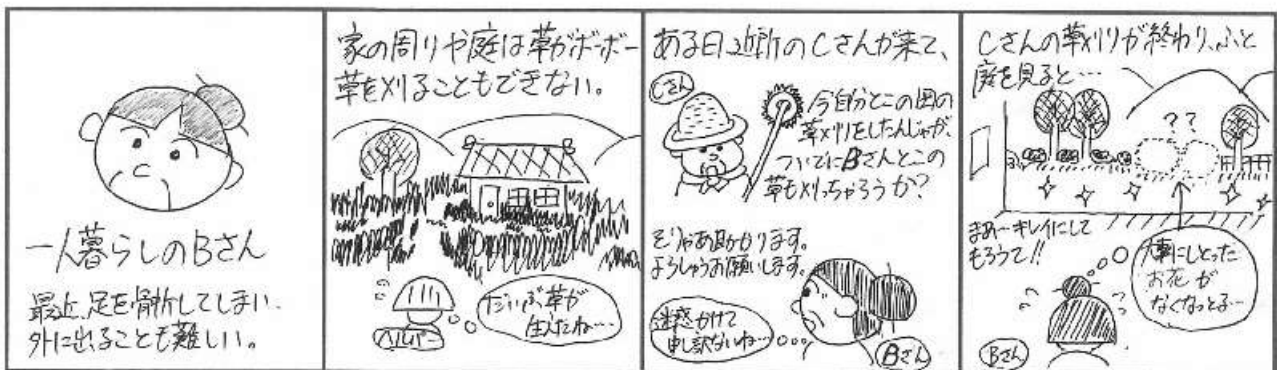 一人暮らしのBさん
最近、足を骨折してしまい、
外に出ることも難しい。
家の周りや庭は草がボーボー
草を刈ることもできない。
だいぶ草が
生えたね…
ヘルパー
ある日近所のCさんが来て、
Cさん
今自分とこの田の
草刈りをしたんじゃが、
ついでにBさんとこの
草も刈っちゃろうか?
そりゃあ助かります。
よろしゅうお願いします。
迷惑かけて
申し訳ないね…
Bさん
Cさんの草刈りが終わり、ふと
庭を見ると…
??
まあ〜キレイにして
もろうて!!
大事にしとった
お花が
なくなっとる…
Bさん